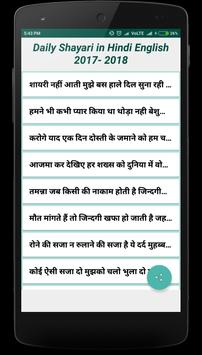 5:43 PM
VoLTE
Daily Shayari in Hindi English
2017- 2018
शायरी नहीं आती मुझे बस हाले दिल सुना रही ...
हमने भी कभी प्यार किया था थोड़ा नही बेशु...
करोगे याद एक दिन दोस्ती के जमाने को हम च...
आजमा कर देखिए हर शख्स को दुनिया में वो...
तमन्ना जब किसी की नाकाम होती है जिन्दगी...
मौत मांगते हैं तो जिन्दगी खफा हो जाती है जह...
रोने की सजा न रुलाने की सजा है ये दर्द मुहब्ब...
कोई ऐसी सजा दो मुझको चलो भुला दो